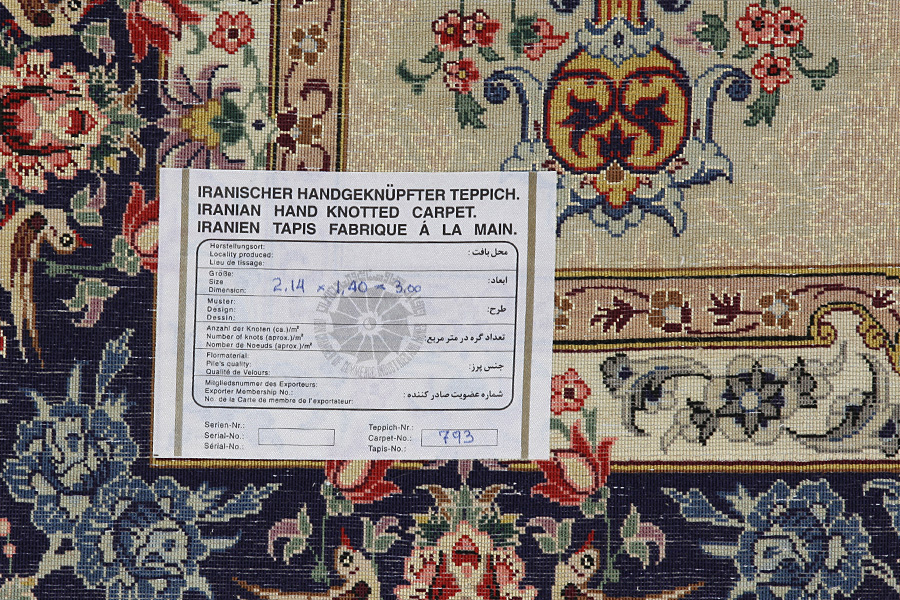 IRANISCHER HANDGEKNÜPFTER TEPPICH.
IRANIAN HAND KNOTTED CARPET.
IRANIEN TAPIS FABRIQUE Á LA MAIN.
Herstellungsort:
Locality produced: محل بافت :
Lieu de tissage:
Größe:
Size 2,14 × 1,40 = 3,00 ابعاد:
Dimension:
Muster:
Design: طرح:
Dessin:
Anzahl der Knoten (ca.)/m²
Number of knots (aprox.)/m² تعداد گره در متر مربع:
Nombre de Noeuds (aprox.)/m²
Flormaterial:
Pile's quality: جنس پرز:
Qualité de Velours:
Mitgliedsnummer des Exporteurs:
Exporter Membership No.: شماره عضویت صادر کننده :
No. de la Carte de membre de l'exportateur:
Serien-Nr.: Teppich-Nr.:
Serial-No.: Carpet-No.: 793
Sérial-No.: Tapis-No.: